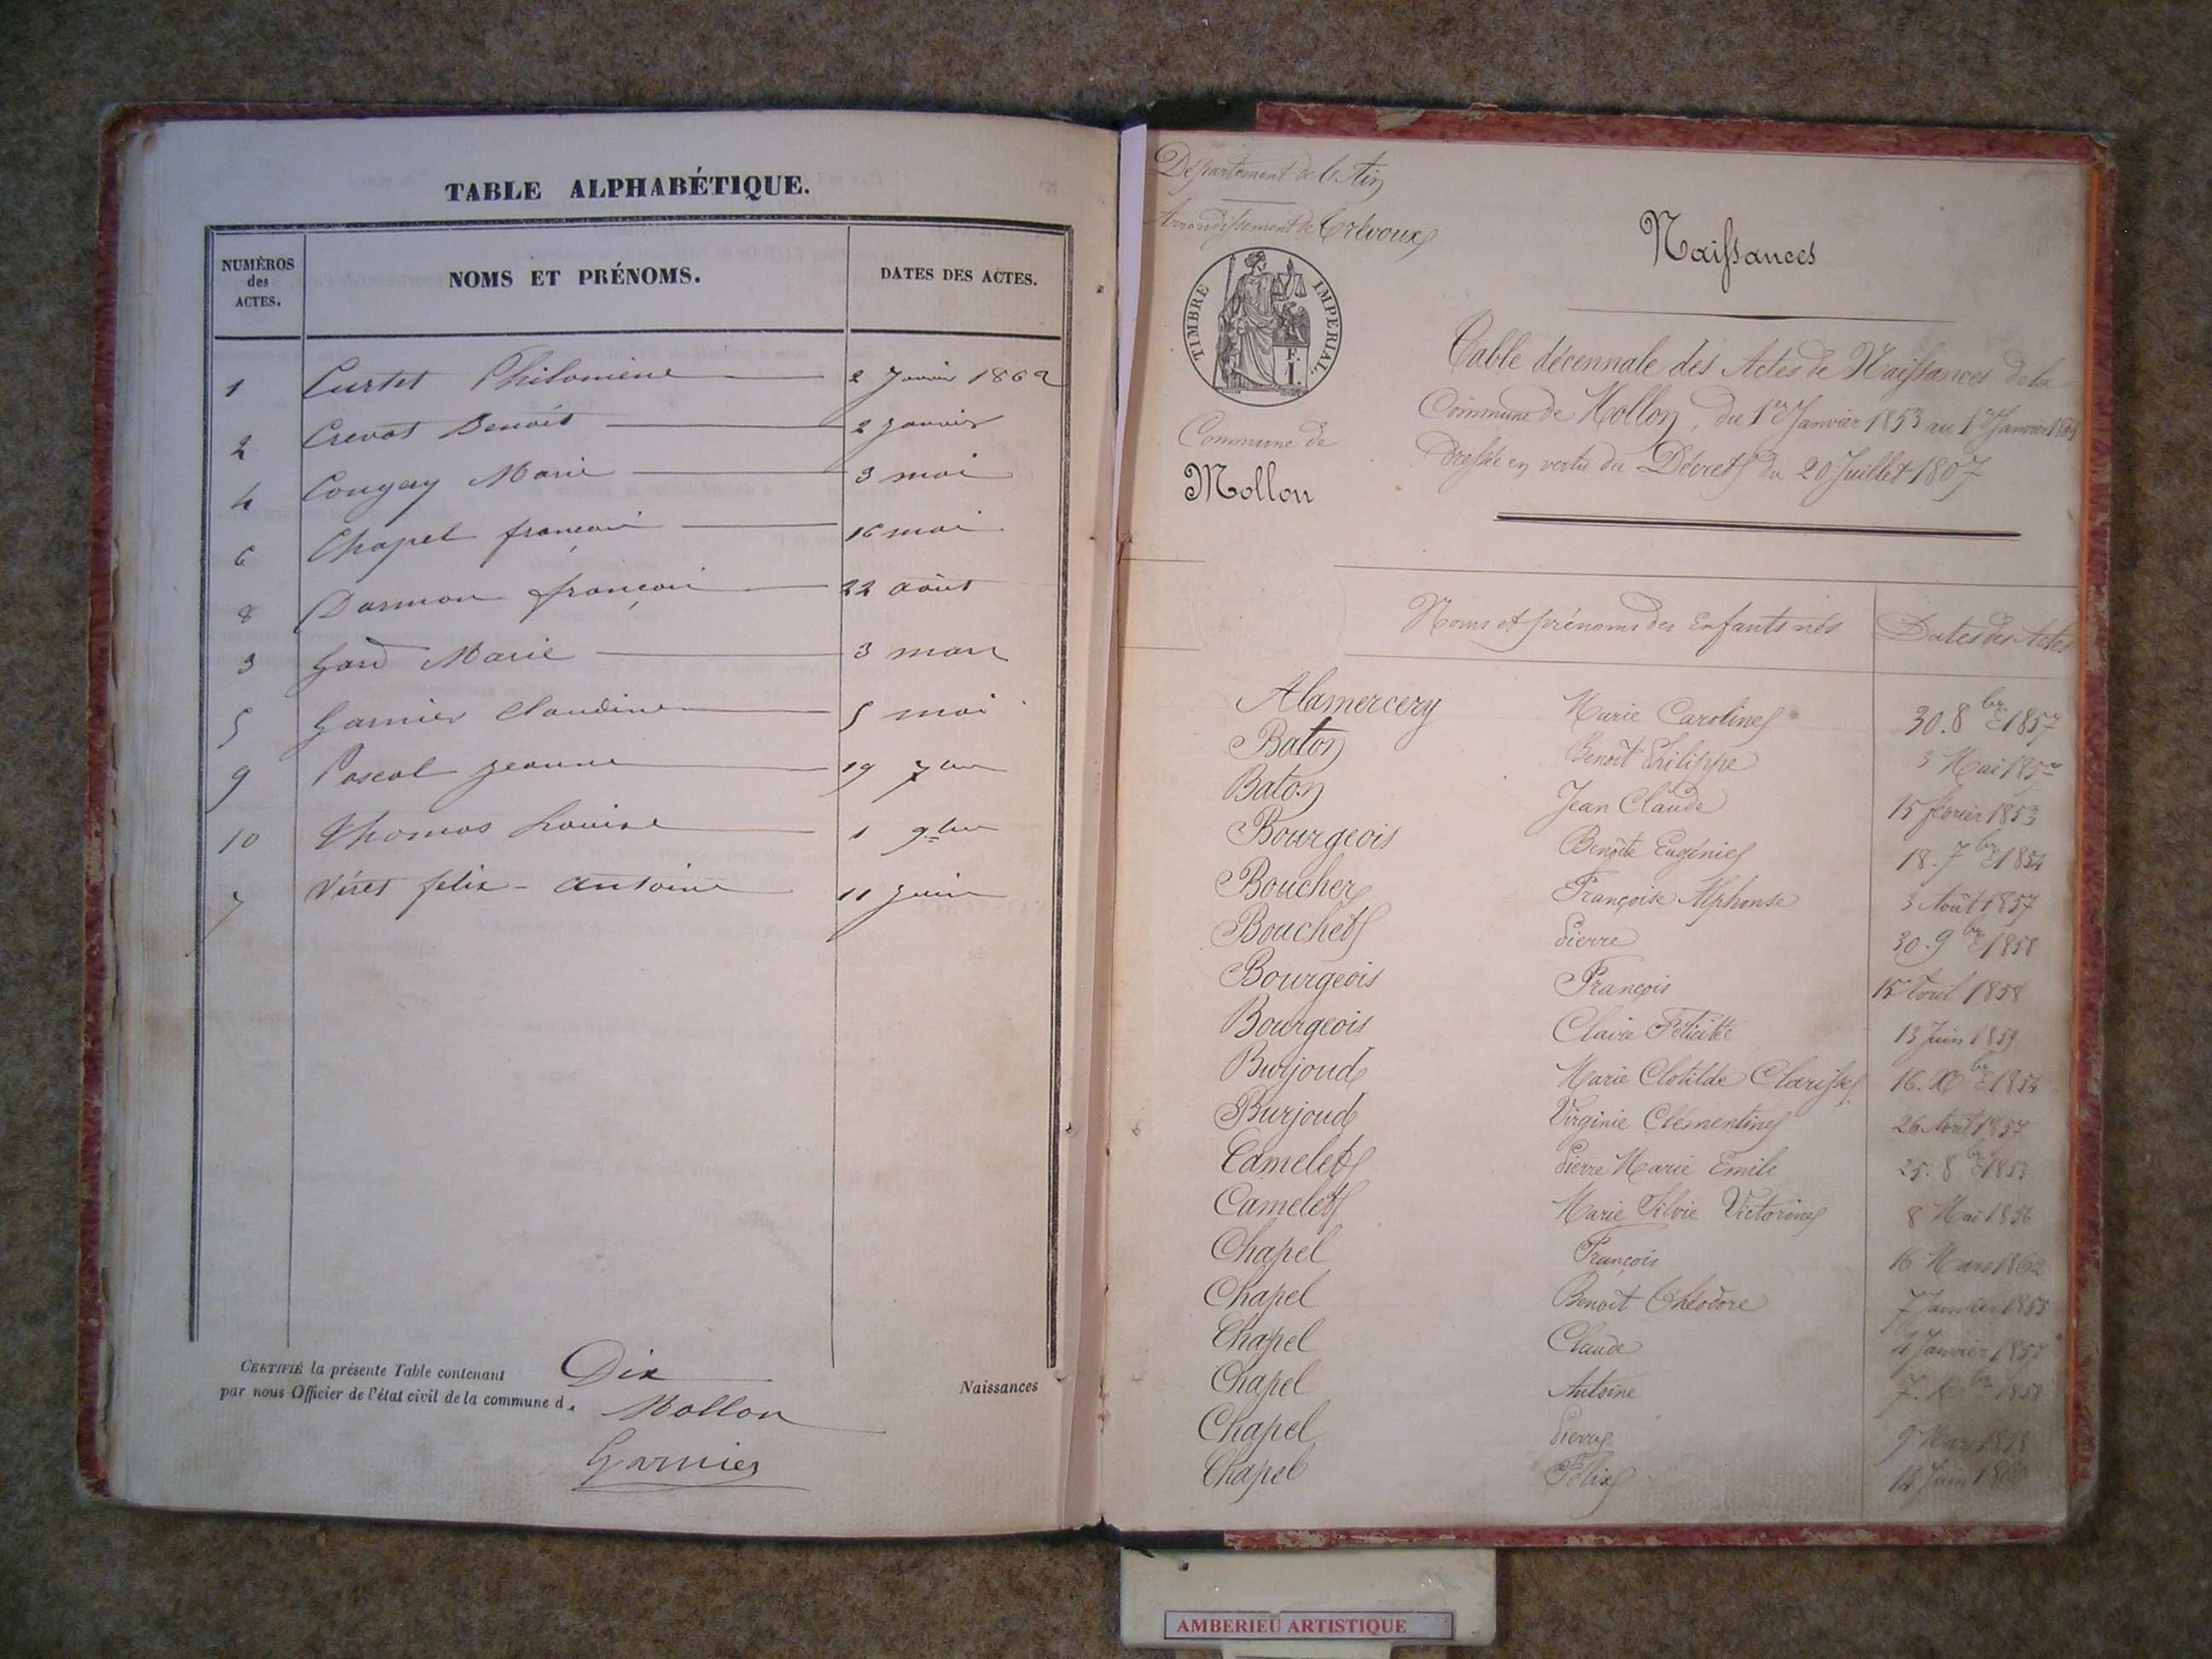 TABLE ALPHABÉTIQUE.
NUMÉROS des ACTES. NOMS ET PRÉNOMS. DATES DES ACTES.
1 Curtet Philomène 2 Janvier 1862
2 Crevat Benoît 2 Janvier
4 Cougay Marie 3 mai
6 Chapel françois 16 mai
8 Dasmon françois 22 août
3 Gard Marie 3 mars
5 Garnier Claudine 5 mai
9 Pascal Jeanne 19 7bre
10 Thomas Louise 1 9bre
7 Véret félix - antoine 11 juin
CERTIFIÉ la présente Table contenant Dix Naissances
par nous Officier de l'état civil de la commune d. Mollon
Garnier
Département de l'Ain
Arrondissement de Trévoux
TIMBRE IMPERIAL.
F. I.
Commune de
Mollon
Naissances
Table décennale des Actes de Naissances de la
Commune de Mollon, du 1er Janvier 1853 au 1er Janvier
dressée en vertu du Décret du 20 Juillet 1807
Noms et prénoms des Enfants nés Dates des Actes
Alamercery Marie Caroline 30. 8bre 1857
Baton Benoît Philippe 3 Mai
Baton Jean Claude 15 février 1853
Bourgeois Benoîte Eugénie 18. 7bre 1854
Boucher Françoise Alphonse 3 Août 1857
Bouchet Pierre 30. 9bre 1858
Bourgeois François 15 Avril 1858
Bourgeois Claire Félicité 13 Juin 1859
Burjoud Marie Clotilde Clarisse 16. Xbre 1854
Burjoud Virginie Clémentine 26 Août 1857
Camelet Pierre Marie Emile 25. 8bre 1853
Camelet Marie Silvie Victorine 8 Mai 1856
Chapel François 16 Mars 1862
Chapel Benoît Théodore 7 Janvier
Chapel Claude 4 Janvier 1857
Chapel Antoine 7. Xbre 1858
Chapel Pierre 9 Mars
Chapel Félix 14 Juin
AMBERIEU ARTISTIQUE